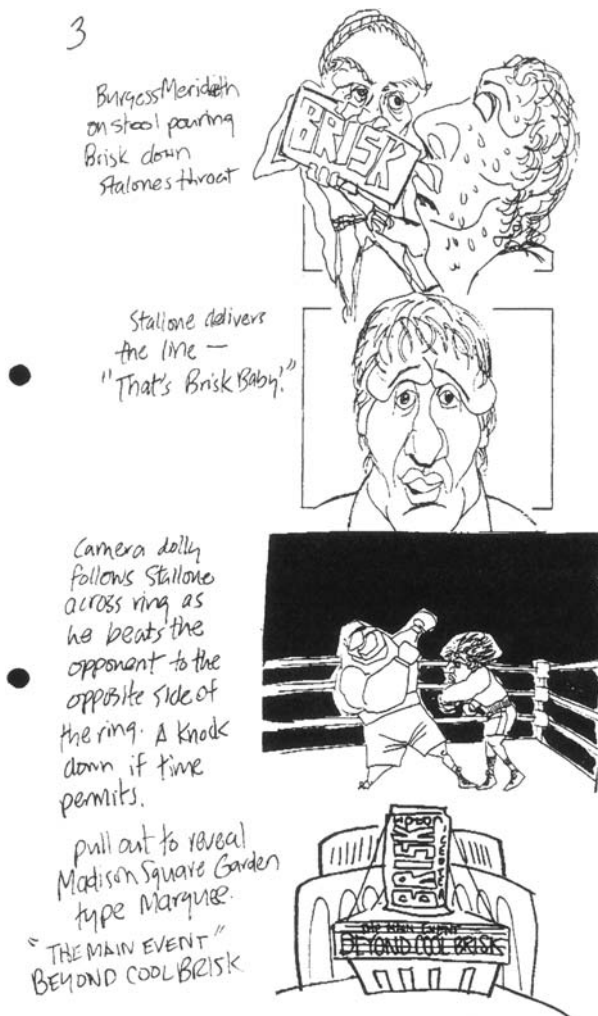 3
Burgess Meridith
on stool pouring
Brisk down
Stalones throat
BRISK
Stallone delivers
the line —
"That's Brisk Baby!"
Camera dolly
follows Stallone
across ring as
he beats the
opponent to the
opposite side of
the ring. A knock
down if time
permits.
pull out to reveal
Madison Square Garden
type Marquee.
"THE MAIN EVENT"
BEYOND COOL BRISK
BRISK
ICED TEA
THE MAIN EVENT
BEYOND COOL BRISK